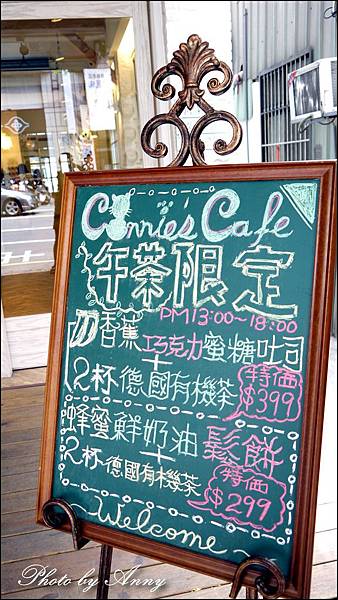 Connies Cafe
午茶限定
PM13:00~18:00
香蕉巧克力蜜糖吐司
+
2杯德國有機茶
特価
$399
蜂蜜鮮奶油鬆餅
+
2杯德國有機茶
特価
$299
Welcome
Photo by Anny